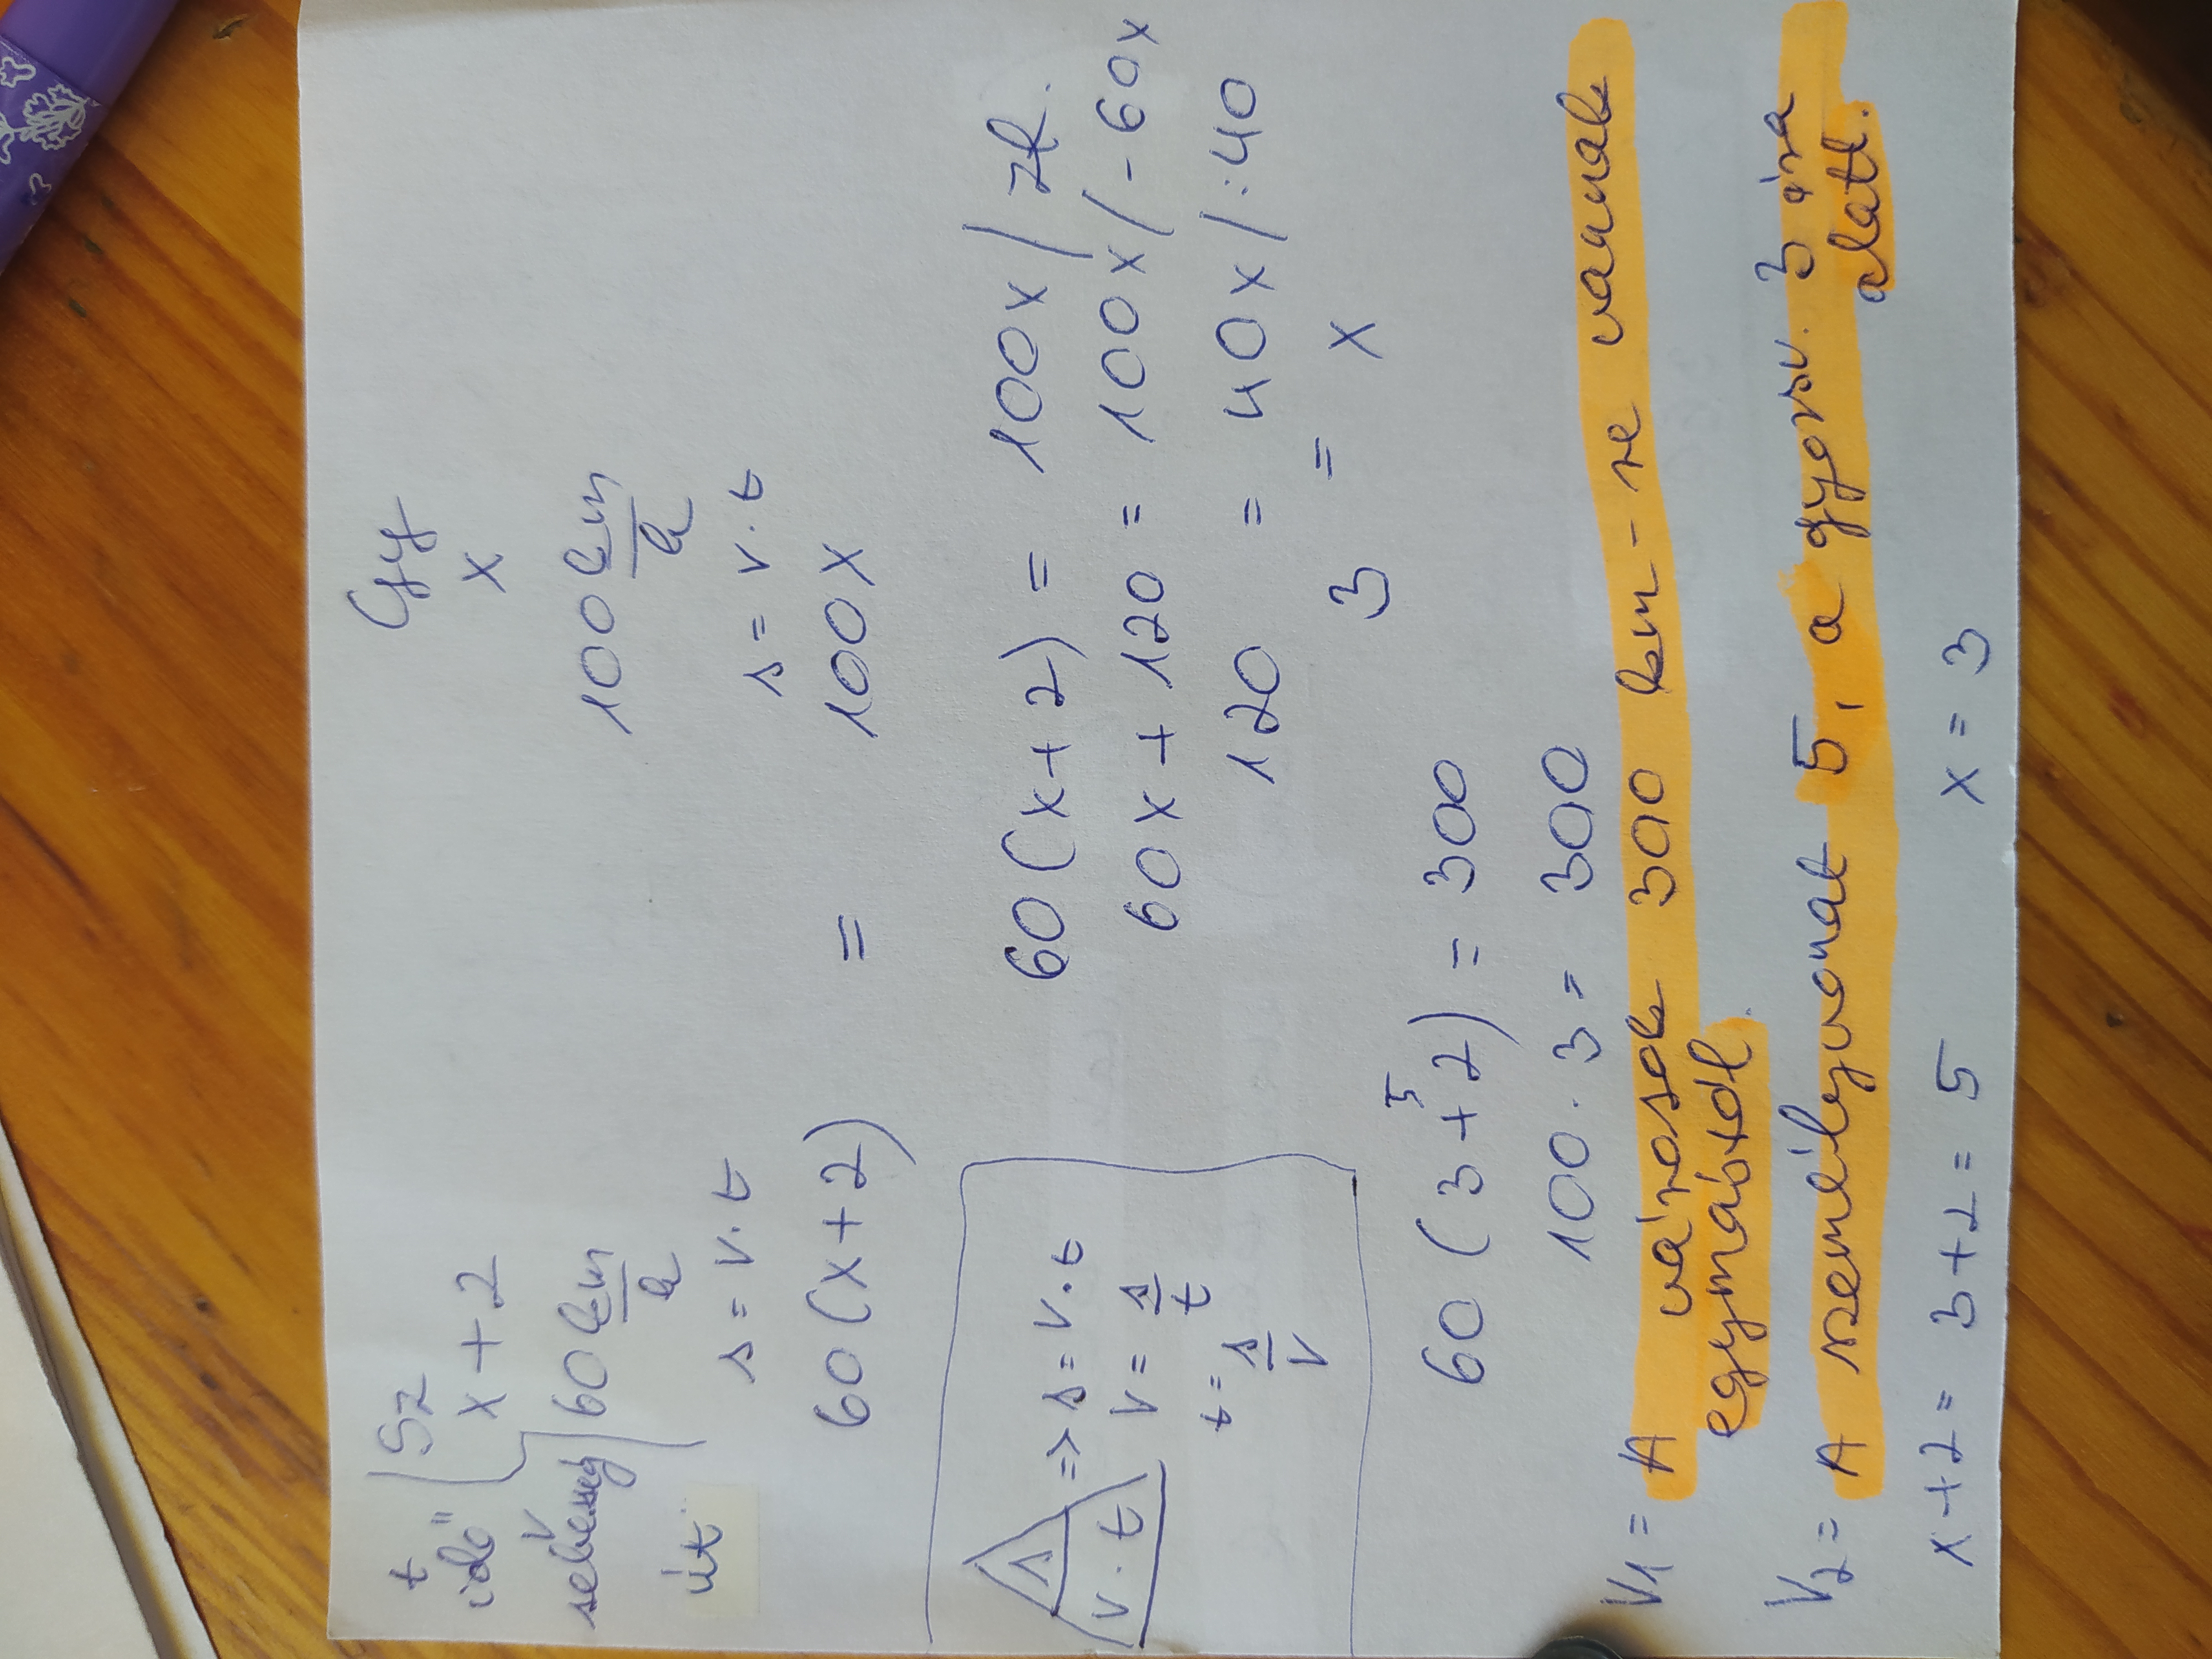 t Sz Gy
idő x + 2 x
v
sebesség 60 km/h 100 km/h
út s = v · t s = v · t
60 (x + 2) = 100x
s => s = v · t
v · t v = s/t
t = s/v
60 (x + 2) = 100x / zf.
60x + 120 = 100x / - 60x
120 = 40x / : 40
3 = x
5
60 (3 + 2) = 300
100 · 3 = 300
V1 = A városok 300 km - re vannak
egymástól.
V2 = A személyvonat 5, a gyorsv. 3 óra
alatt.
x + 2 = 3 + 2 = 5 x = 3